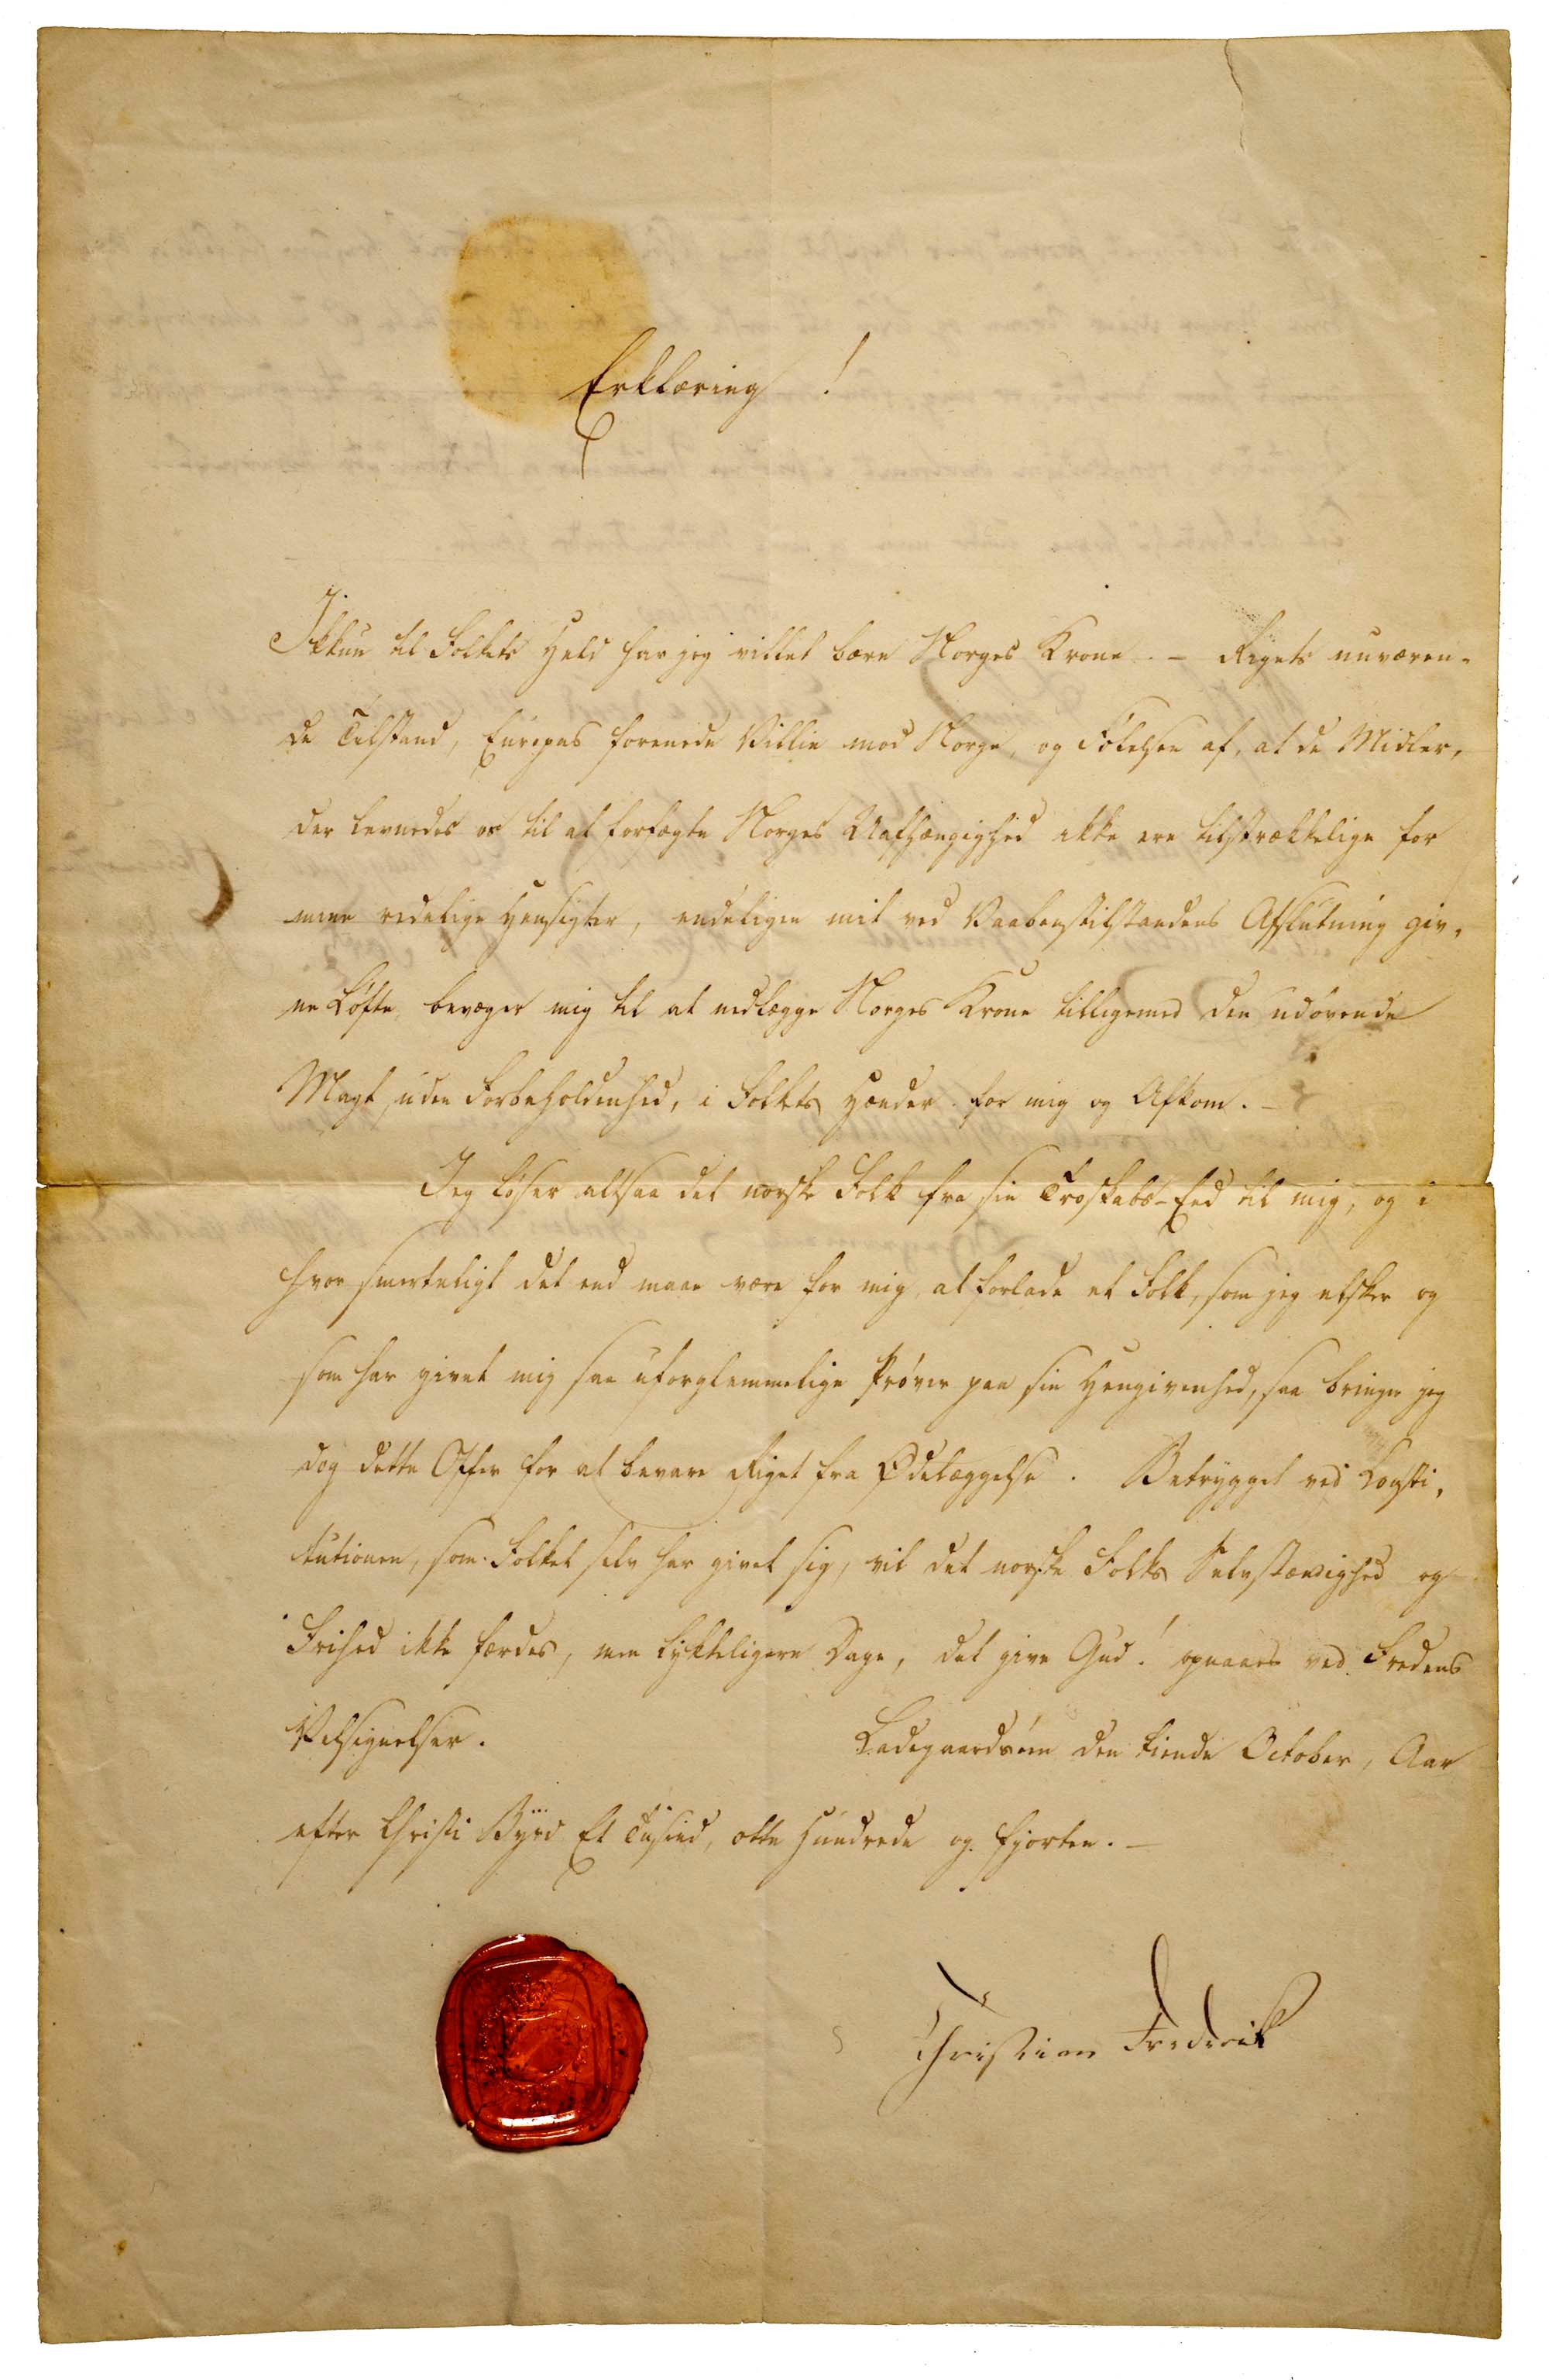 Erklæring!
Ikkun til Folkets Held har jeg villet bære Norges Krone. – Rigets nuværen-
de Tilstand, Europas forenede Villie mod Norge, og Følelsen af, at de Midler,
der levnedes os til at forfægte Norges Uafhængighed ikke ere tilstrækkelige for
mine redelige Hensigter, endeligen mit ved Vaabenstilstandens Afslutning giv-
ne Løfte, bevæger mig til at nedlægge Norges Krone tilligemed den udøvende
Magt, uden Forbeholdenhed, i Folkets Hænder for mig og Afkom. –
Jeg løser altsaa det norske Folk fra sin Troskabs-Eed til mig, og i
hvor smerteligt det end maae være for mig, at forlade et Folk, som jeg elsker og
som har givet mig saa uforglemmelige Prøver paa sin Hengivenhed, saa bringer jeg
dog dette Offer for at bevare Riget fra Ødelæggelse. Betrygget ved Consti-
tutionen, som Folket selv har givet sig, vil det norske Folks Selvstændighed og
Frihed ikke færdes, men lykkeligere Dage, det give Gud! opnaaes ved Fredens
Velsignelser. Ladegaardsøen den tiende October, Aar
efter Christi Byrd Et Tusind, otte Hundrede og fjorten. –
Christian Frederik